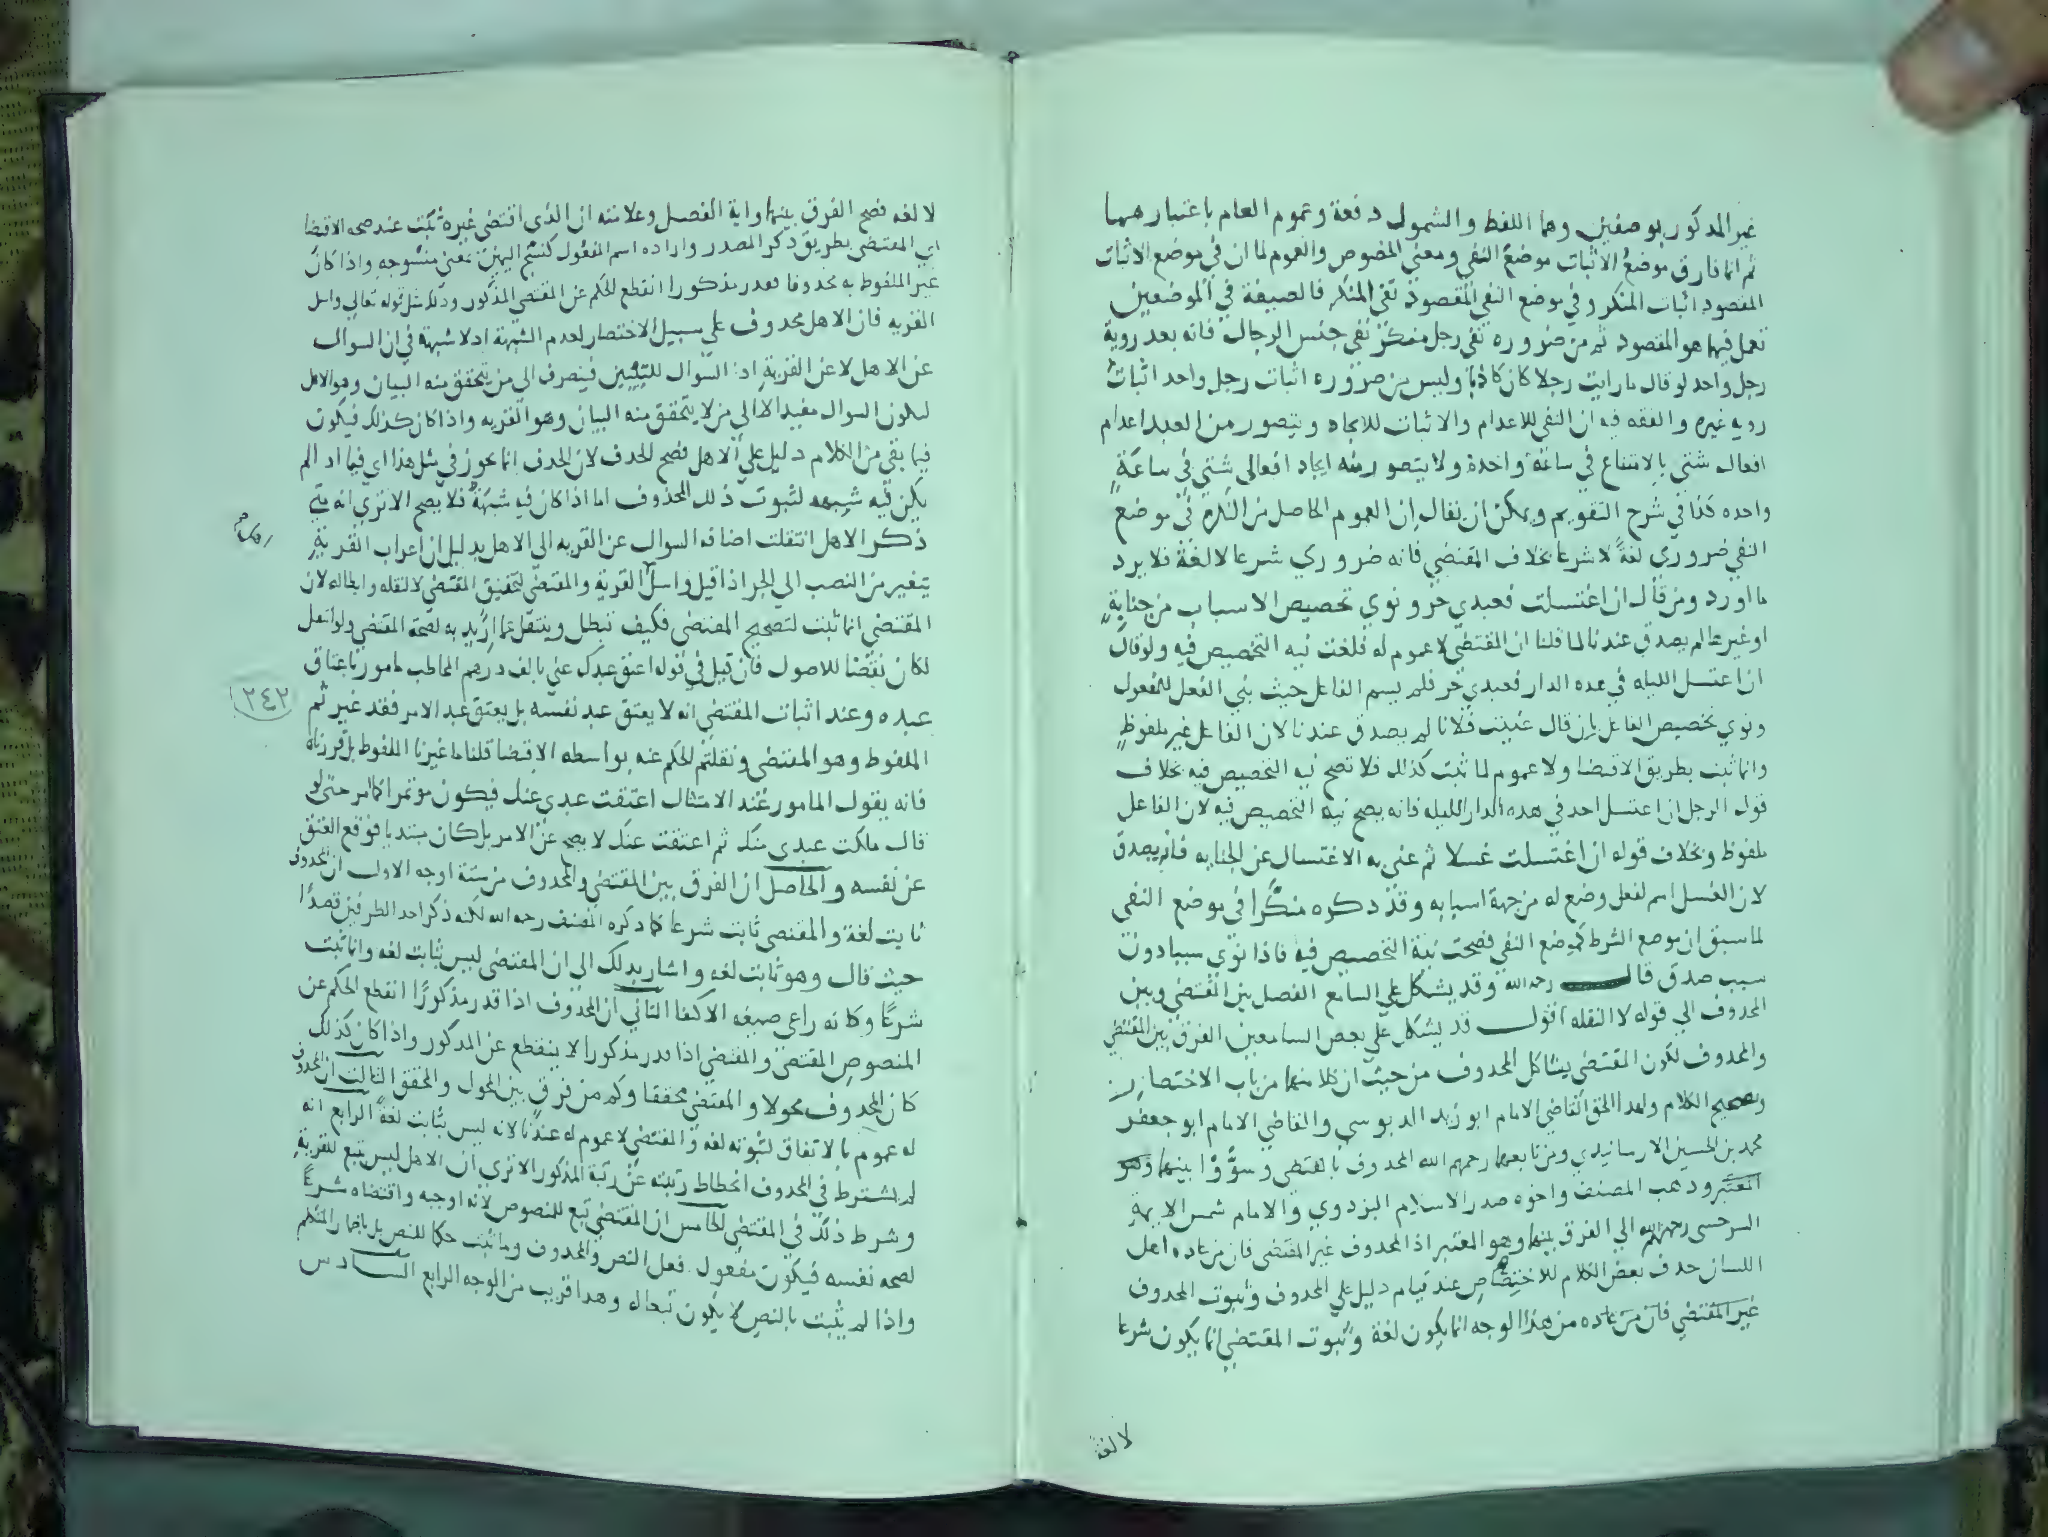 غير المذكور بوصفين وهما اللفظ والشمول دفعة وعموم العام باعتبارهما
ثم انما فارق موضع الاثبات موضع النفي ومعنى الخصوص والعموم لما ان في موضع الاثبات
المقصود اثبات المنكر وفي موضع النفي المقصود نفي المنكر فالصيغة في الموضعين
تعمل فيما هو المقصود ثم من ضرورة نفي رجل منكر نفي جنس الرجال فانه بعد روية
رجل واحد لو قال ما رايت رجلا كان كاذبا وليس من ضرورة اثبات رجل واحد اثبات
رويه غيره والفقه فيه ان النفي للاعدام والاثبات للايجاد ويتصور من العبد اعدام
افعال شتى بالامتناع في ساعة واحدة ولا يتصور منه ايجاد افعال شتى في ساعة
واحده كذا في شرح التقويم ويمكن ان يقال ان العموم الحاصل من النكرة في موضع
النفي ضروري لغة لا شرعا بخلاف المقتضي فانه ضروري شرعا لا لغة فلا يرد
ما اورد ومن قال ان اغتسلت فعبدي حر ونوي تخصيص الاسباب من جنابة
او غيرها لم يصدق عندنا لما قلنا ان المقتضي لا عموم له فلغت نيه التخصيص فيه ولو قال
ان اغتسل الليله في هذه الدار فعبدي حر فلم يسم الفاعل حيث بني الفعل للمفعول
ونوي تخصيص الفاعل بان قال عنيت فلانا لم يصدق عندنا لان الفاعل غير ملفوظ
وانما ثبت بطريق الاقتضا ولا عموم لما ثبت كذلك فلا تصح نيه التخصيص فيه بخلاف
قول الرجل ان اغتسل احد في هذه الدار الليله فانه يصح نيه التخصيص فيه لان الفاعل
ملفوظ وبخلاف قوله ان اغتسلت غسلا ثم عني به الاغتسال عن الجنابه فانه يصدق
لان الغسل اسم لفعل وضع له من جهة اسبابه وقد ذكره منكرا في موضع النفي
لما سبق ان موضع الشرط كموضع النفي فصحت نية التخصيص فيه فاذا نوي سببا دون
سبب صدق قال رحمه الله وقد يشكل علي السامع الفصل بين المقتضي وبين
المحذوف الي قوله لا النقله اقول قد يشكل علي بعض السامعين الفرق بين المقتضي
والمحذوف لكون المقتضي يشاكل المحذوف من حيث ان كلا منهما من باب الاختصار
وتصحيح الكلام ولهذا الحق القاضي الامام ابو زيد الدبوسي والقاضي الامام ابو جعفر
محمد بن الحسين الارسانيدي ومن تابعهما رحمهم الله المحذوف بالمقتضي وسووا بينهما وهو
المعتبر وذهب المصنف واخوه صدر الاسلام البزدوي والامام شمس الايمة
السرخسي رحمهم الله الي الفرق بينهما وهو المعتبر اذ المحذوف غير المقتضي فان من عاده اهل
اللسان حذف بعض الكلام للاختصار عند قيام دليل علي المحذوف وثبوت المحذوف
غير المقتضي فان من عاده من هذا الوجه انما يكون لغة وثبوت المقتضي انما يكون شرعا
لا لغة
لا لغه فصح الفرق بينهما واية الفصل وعلامته ان الذي اقتضي غيره ثبت عند صحه الاقتضا
اي المقتضي بطريق ذكر المصدر واراده اسم المفعول كنسج اليمن بمعني منسوجه واذا كان
غير الملفوظ به محذوفا فقدر مذكورا انقطع الحكم عن المقتضي المذكور وذلك مثل قوله تعالي واسل
القريه فان الاهل محذوف علي سبيل الاختصار لعدم الشبهة اذ لا شبهة في ان السوال
عن الاهل لا عن القرية اذ السوال للتبيين فينصرف الي من يتحقق منه البيان وهو الاهل
ليكون السوال مفيدا لا الي من لا يتحقق منه البيان وهو القريه واذا كان كذلك فيكون
فيما بقي من الكلام دليل علي الاهل فصح الحذف لان الحذف انما يجوز في مثل هذا اي فيما اذا لم
يكن فيه شبهه لثبوت ذلك المحذوف اما اذا كان فيه شبهة فلا يصح الا تري انه متي
ذكر الاهل انتقلت اضافه السوال عن القريه الي الاهل بدليل ان اعراب القرية
يتغير من النصب الي الجر اذا قيل واسل القرية والمقتضي لتحقيق المقتضي لا لنقله وابطاله لان
المقتضي انما ثبت لتصحيح المقتضي فكيف تبطل وينتقل عما اريد به لصحة المقتضي ولو انتقل
لكان نقضا للاصول فان قيل في قوله اعتق عبدك عني بالف درهم المخاطب مامور باعتاق
عبده وعند اثبات المقتضي انه لا يعتق عبد نفسه بل يعتق عبد الامر فقد غير ثم
٢٤٢
الملفوظ وهو المقتضي ونقلتم الحكم عنه بواسطه الاقتضا قلنا ما غيرنا الملفوظ بل قررناه
فانه يقول المامور عند الامتثال اعتقت عبدي عنك فيكون موتمرا كما امر حتي لو
قال ملكت عبدي منك ثم اعتقت عنك لا يصح عن الامر بل كان مبتديا فوقع العتق
عن نفسه والحاصل ان الفرق بين المقتضي والمحذوف من ستة اوجه الاول ان المحذوف
ثابت لغة والمقتضي ثابت شرعا كما ذكره المصنف رحمه الله لكنه ذكر احد الطرفين قصدا
حيث قال وهو ثابت لغه واشار بذلك الي ان المقتضي ليس ثابت لغه وانما ثبت
شرعا وكانه راعي صيغه الاكتفا الثاني ان المحذوف اذا قدر مذكورا انقطع الحكم عن
المنصوص المقتضي والمقتضي اذا قدر مذكورا لا ينقطع عن المذكور واذا كان كذلك
كان المحذوف محولا والمقتضي محققا وكم من فرق بين المحول والمحقق الثالث ان المحذوف
له عموم بالاتفاق لثبوته لغه والمقتضي لا عموم له عندنا لانه ليس ثابت لغة الرابع انه
لم يشترط في المحذوف انحطاط رتبته عن رتبة المذكور الا تري ان الاهل ليس بتبع للقرية
وشرط ذلك في المقتضي الخامس ان المقتضي تبع للنصوص لانه اوجبه واقتضاه شرعا
لصحه نفسه فيكون مفعول فعل النص والمحذوف وما ثبت حكما للنص بل باضمار المتكلم
واذا لم يثبت بالنص لا يكون تبعا له وهذا قريب من الوجه الرابع السادس